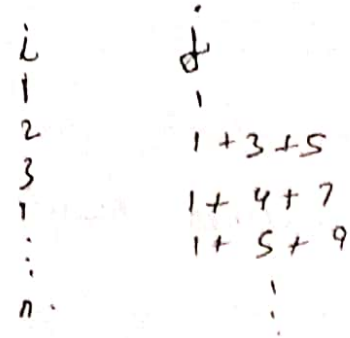 i j
1 1
2 1 + 3 + 5
3 1 + 4 + 7
1 1 + 5 + 9
⋮ ⋮
n.